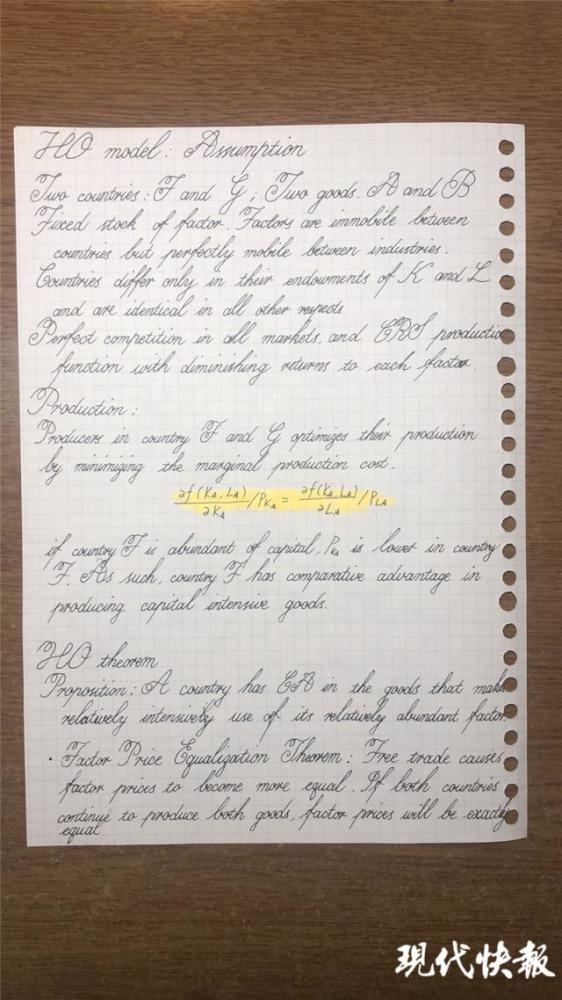 HO model: Assumption
Two countries: F and G; Two goods. A and B
Fixed stock of factor. Factors are immobile between
countries but perfectly mobile between industries.
Countries differ only in their endowments of K and L
and are identical in all other respects
Perfect competition in all markets. and CRS production
function with diminishing returns to each factor.
Production:
Producers in country F and G optimizes their production
by minimizing the marginal production cost.
∂f(K_A, L_A)/∂K_A /P_KA = ∂f(K_A, L_A)/∂L_A /P_LA
if country F is abundant of capital, P_KA is lower in country
F. As such, country F has comparative advantage in
producing capital intensive goods.
HO theorem
Proposition: A country has CA in the goods that make
relatively intensively use of its relatively abundant factor.
· Factor Price Equalization Theorem: Free trade causes
factor prices to become more equal. If both countries
continue to produce both goods, factor prices will be exactly
equal
现代快报